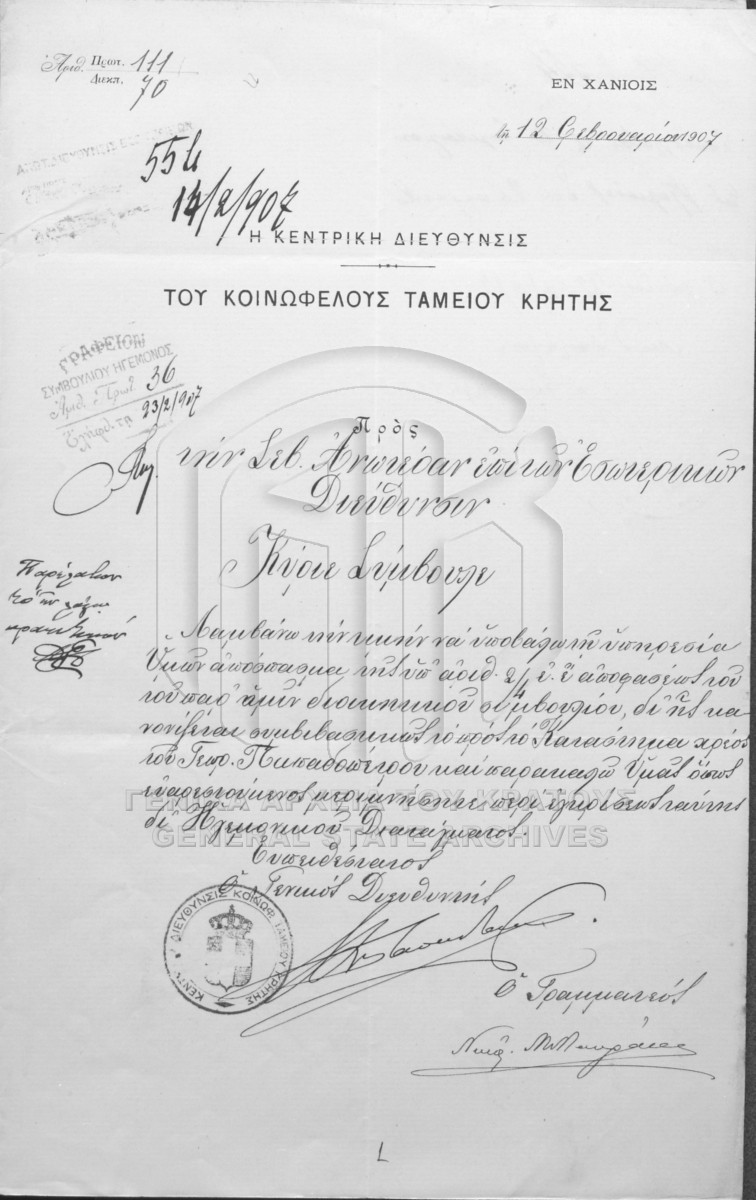 Ἀριθ. Πρωτ. 111
Διεκπ. 70
ΕΝ ΧΑΝΙΟΙΣ
τῇ 12 Φεβρουαρίου 1907
554
14/2/907
Η ΚΕΝΤΡΙΚΗ ΔΙΕΥΘΥΝΣΙΣ
ΤΟΥ ΚΟΙΝΩΦΕΛΟΥΣ ΤΑΜΕΙΟΥ ΚΡΗΤΗΣ
ΓΡΑΦΕΙΟΝ
ΣΥΜΒΟΥΛΙΟΥ ΗΓΕΜΟΝΟΣ
Ἀριθ. Πρωτ. 36
Ἐλήφθη τῇ 23/2/907
Πρὸς
τὴν Σεβ. Ἀνωτέραν ἐπὶ τῶν Ἐσωτερικῶν
Διεύθυνσιν
Κύριε Σύμβουλε
Παρέλαβον
Λαμβάνω τὴν τιμὴν νὰ ὑποβάλω τῇ ὑπηρεσίᾳ
Ὑμῶν ἀπόσπασμα τῆς ὑπ' ἀριθ. ἀποφάσεως τοῦ
τοῦ παρ' ἡμῖν διοικητικοῦ συμβουλίου, δι' ἧς κα-
νονίζεται συμβιβαστικῶς τὸ πρὸς τὸ Κατάστημα χρέος
τοῦ Γεωρ. Παπαδοπέτρου καὶ παρακαλῶ Ὑμᾶς ὅπως
εὐαρεστούμενος μεριμνήσητε περὶ ἐγκρίσεως ταύτης
δι' Ἡγεμονικοῦ Διατάγματος.
Εὐπειθέστατος
Ὁ Γενικὸς Διευθυντής
ΚΕΝΤΡ. ΔΙΕΥΘΥΝΣΙΣ ΚΟΙΝΩΦ. ΤΑΜΕΙΟΥ ΚΡΗΤΗΣ
Ὁ Γραμματεύς
ΓΕΝΙΚΑ ΑΡΧΕΙΑ ΤΟΥ ΚΡΑΤΟΥΣ
GENERAL STATE ARCHIVES